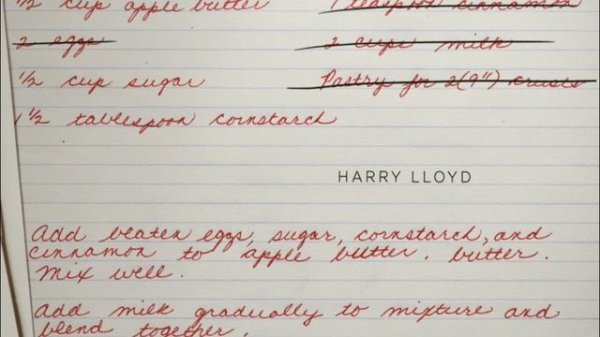 ½ cup apple butter
1 teaspoon cinnamon
2 eggs
2 cups milk
½ cup sugar
Pastry for 2(9") crusts
1 ½ tablespoon cornstarch
HARRY LLOYD
Add beaten eggs, sugar, cornstarch, and
cinnamon to apple butter. butter.
Mix well.
Add milk gradually to mixture and
blend together.